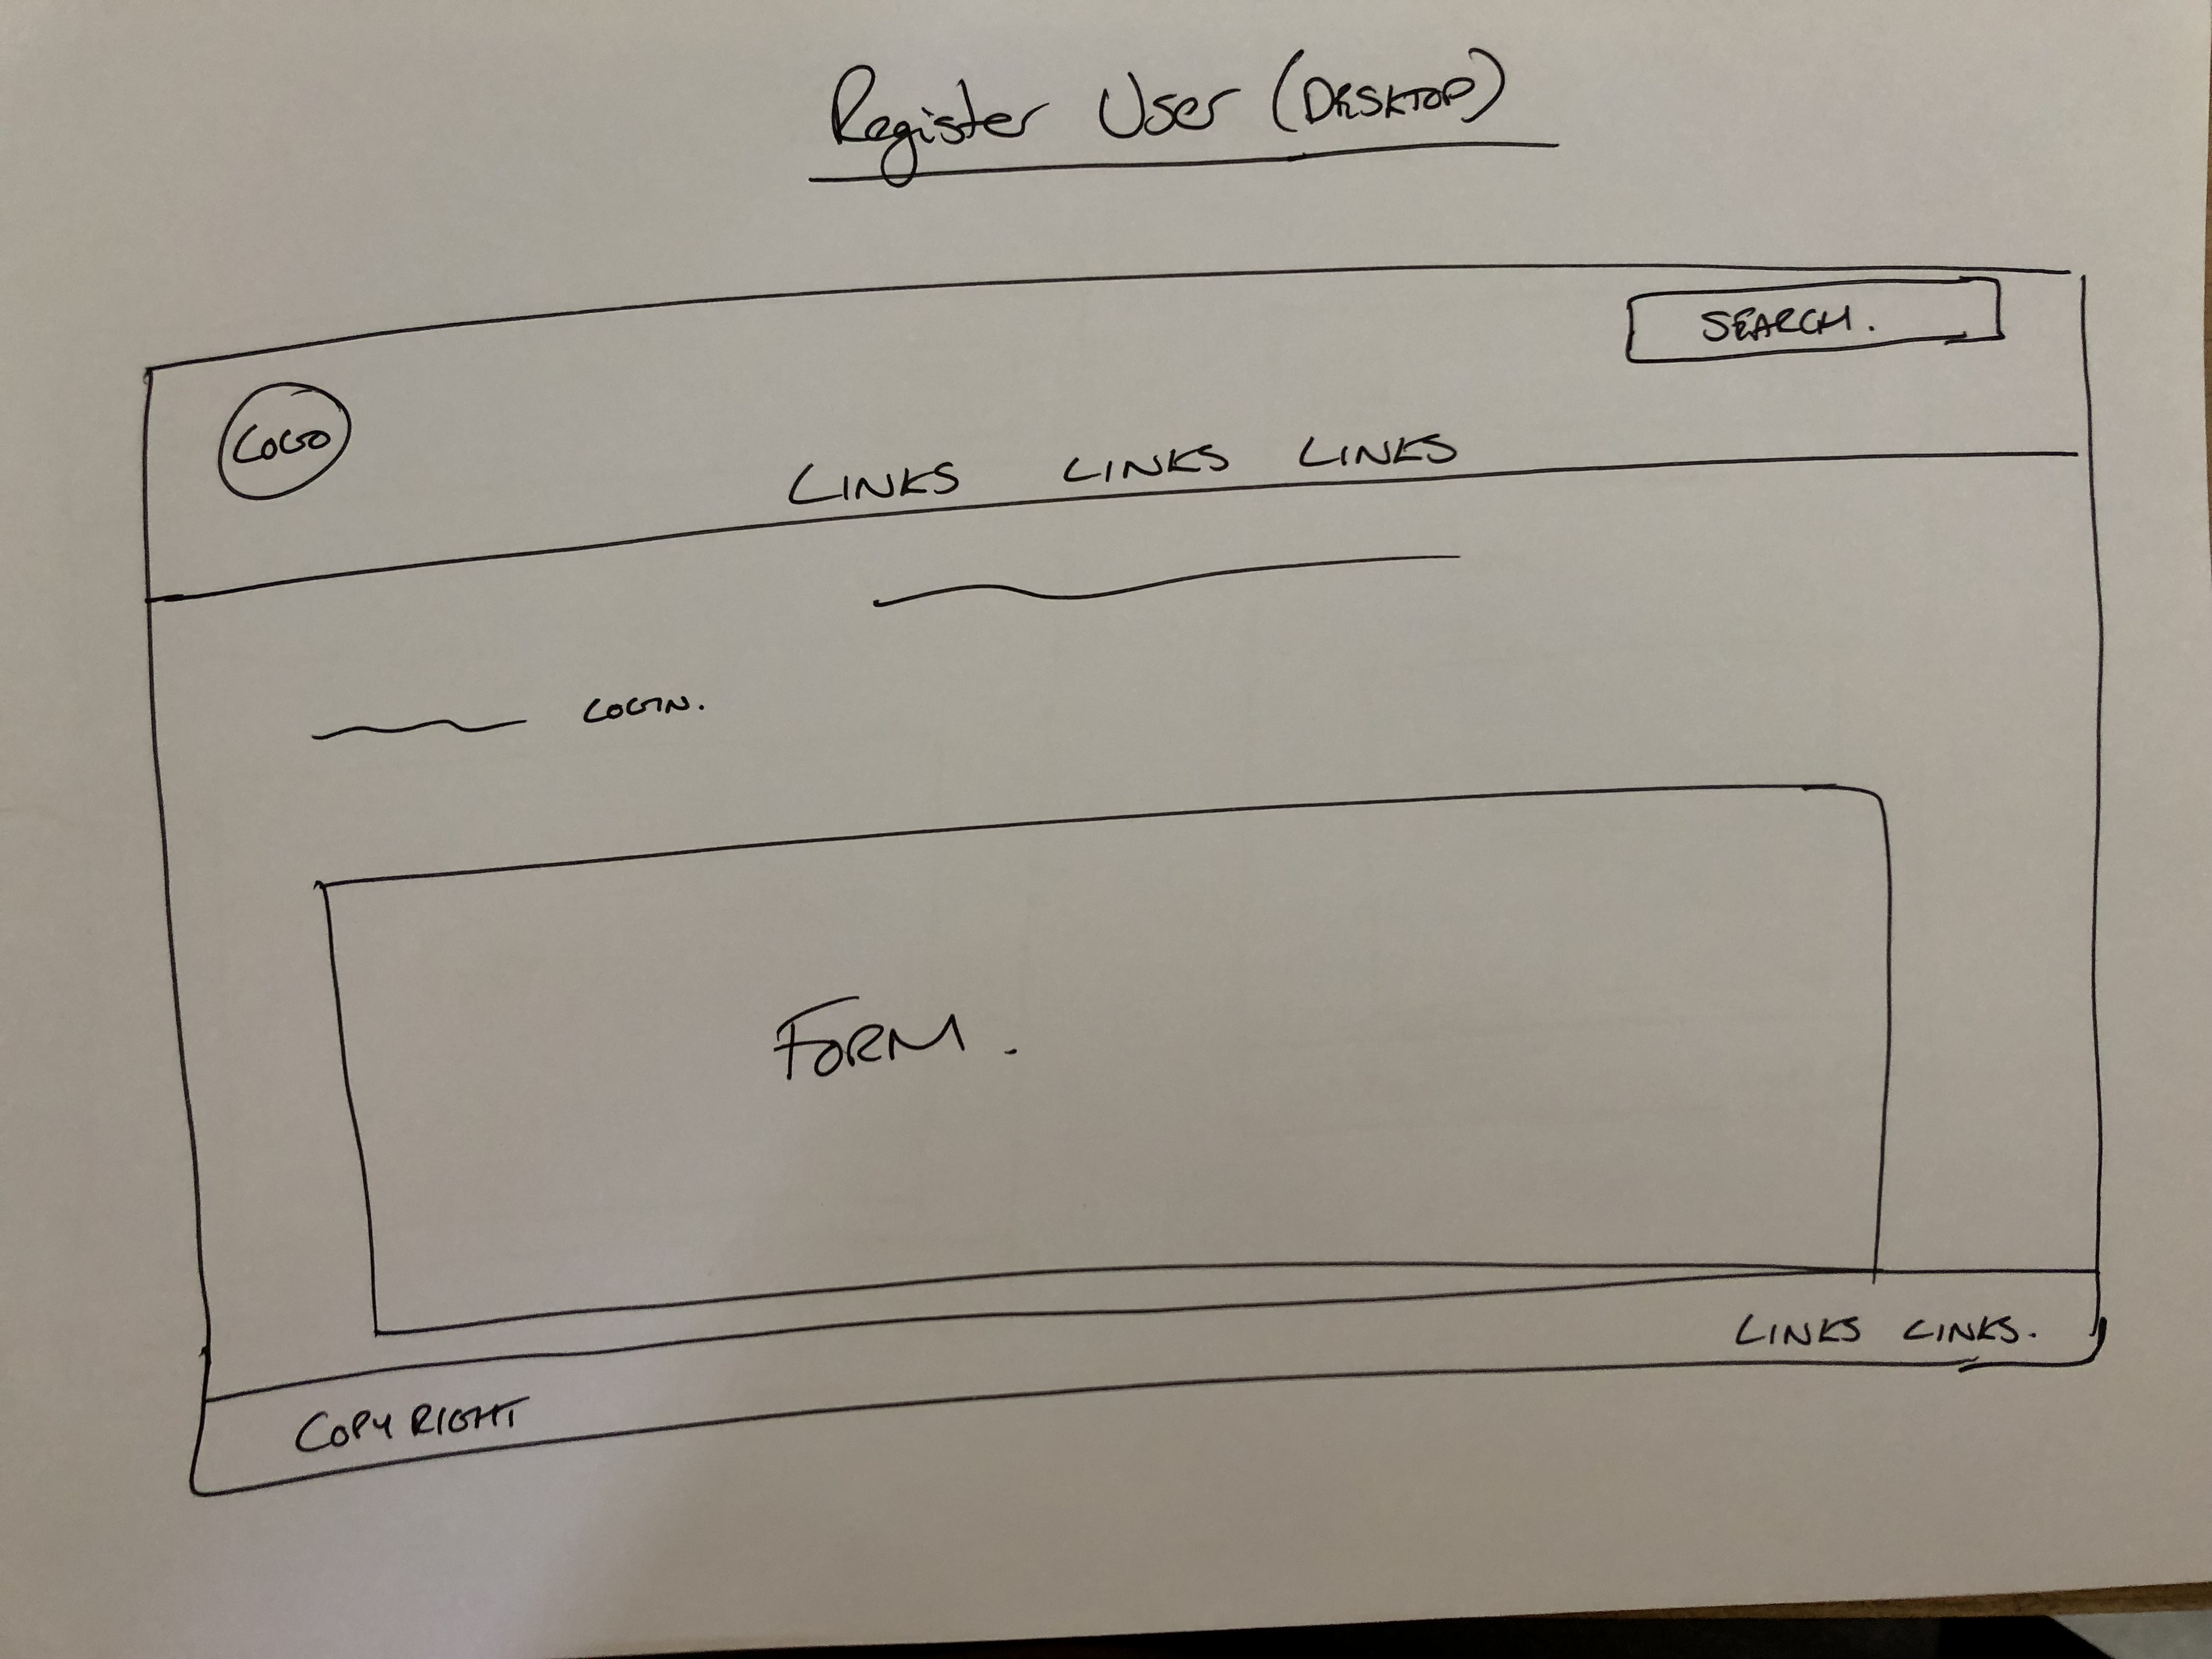 Register User (DESKTOP)
SEARCH.
LOGO
LINKS LINKS LINKS
LOGIN.
FORM.
COPYRIGHT LINKS LINKS.